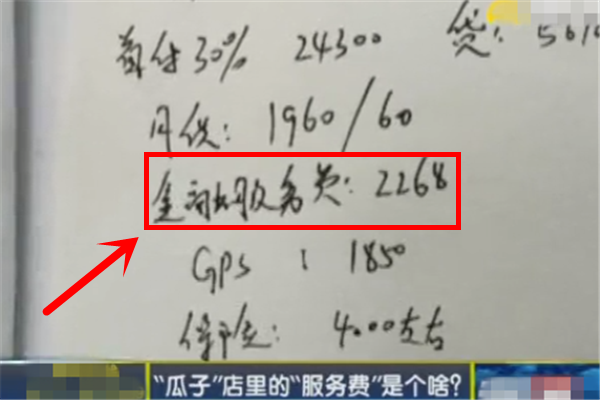 首付30% 24300 贷:
月供: 1960/60
金融服务费: 2268
GPS : 1850
4000左右
“瓜子”店里的“服务费”是个啥?